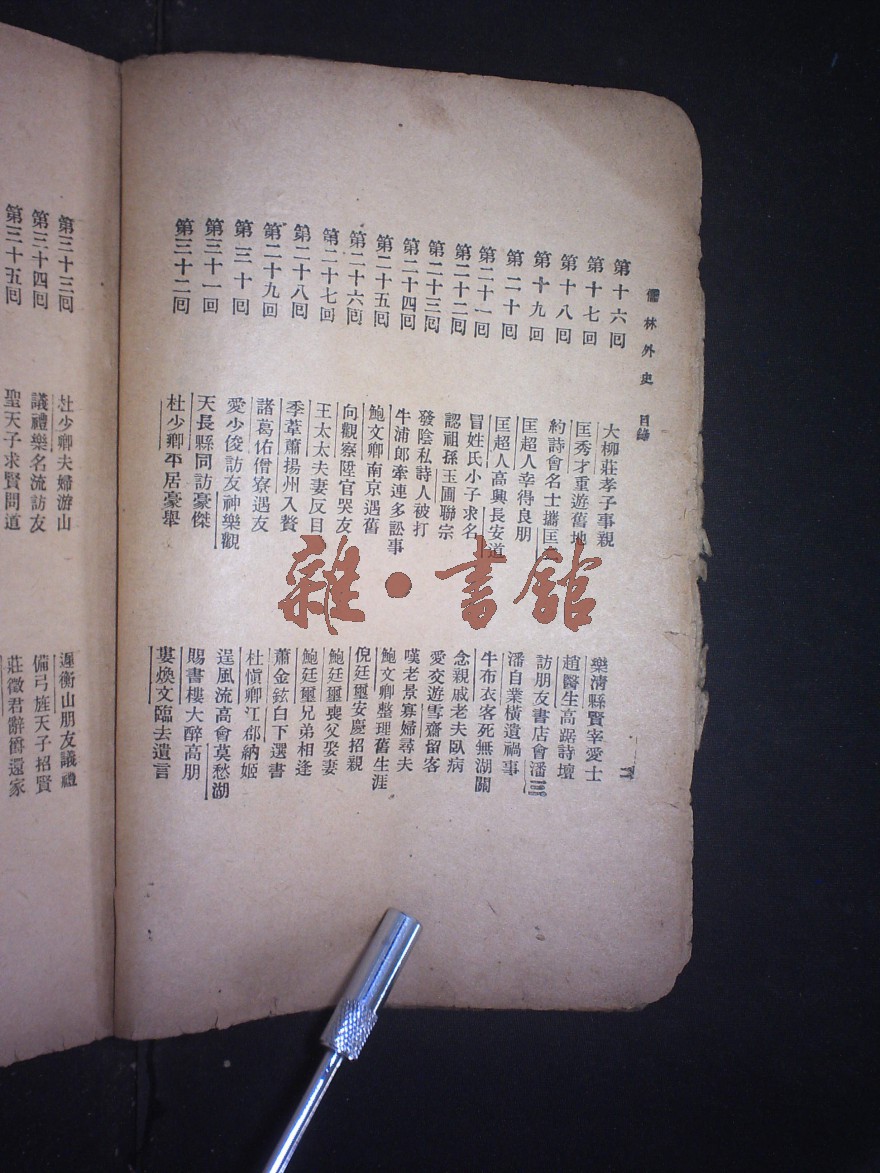 儒林外史 目錄
第十六回 大柳莊孝子事親 樂清縣賢宰愛士
第十七回 匡秀才重遊舊地 趙醫生高踞詩壇
第十八回 約詩會名士攜匡 訪朋友書店會潘
第十九回 匡超人幸得良朋 潘自業橫遺禍事
第二十回 匡超人高興長安道 牛布衣客死蕪湖關
第二十一回 冒姓氏小子求名 念親戚老夫臥病
第二十二回 認祖孫玉圃聯宗 愛交遊雪齋留客
第二十三回 發陰私詩人被打 嘆老景寡婦尋夫
第二十四回 牛浦郎牽連多訟事 鮑文卿整理舊生涯
第二十五回 鮑文卿南京遇舊 倪廷璽安慶招親
第二十六回 向觀察陞官哭友 鮑廷璽喪父娶妻
第二十七回 王太太夫妻反目 鮑廷璽兄弟相逢
第二十八回 季葦蕭揚州入贅 蕭金鉉白下選書
第二十九回 諸葛佑僧寮遇友 杜慎卿江郡納姬
第三十回 愛少俊訪友神樂觀 逞風流高會莫愁湖
第三十一回 天長縣同訪豪傑 賜書樓大醉高朋
第三十二回 杜少卿平居豪舉 婁煥文臨去遺言
第三十三回 杜少卿夫婦游山 遲衡山朋友議禮
第三十四回 議禮樂名流訪友 備弓旌天子招賢
第三十五回 聖天子求賢問道 莊徵君辭爵還家
雜·書館